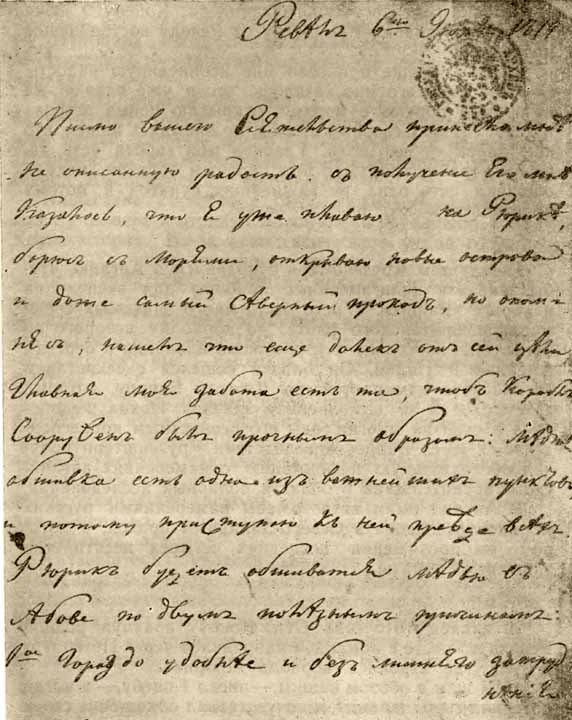 Ревель 6го 1814
Писмо вашего Сіятельства принесло мнѣ
не описанную радость. съ полученіе Его мнѣ
Казалось, что Я уже плаваю на Рюрикѣ,
борюсь съ Морями, открываю новые острова
и даже самый Сѣверный проходъ, но опом-
нясь, нашелъ что еще далекъ отъ сей цѣли
Главная моя забота есть та, чтобъ Корабль
Сооруженъ былъ прочнымъ образомъ: мѣдная
обшивка есть одна изъ важнейшихъ пунктовъ
и потому приступаю къ ней прежде всѣхъ.
Рюрикъ будетъ обшиватся мѣдью въ
Абове по двумъ полѣзнымъ причинамъ:
1ое Гораздо удобнѣе и безъ лишняго затруд
нѣнія